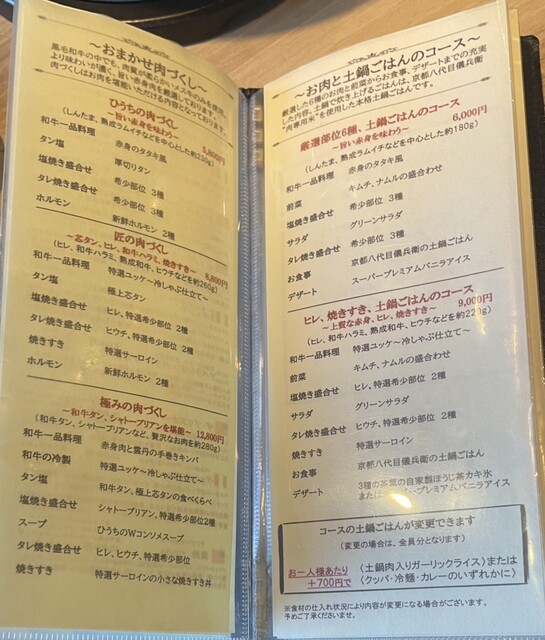 ～おまかせ肉づくし～
黒毛和牛の中でも、肉質が柔らかいメス牛のみを使用
より味わいが濃く、旨い赤身を厳選しております。
肉づくしはお肉を堪能いただける内容となっております。
ひうちの肉づくし
～旨い赤身を味わう～ 5,800円
(しんたま、熟成ラムイチなどを中心とした約230g)
和牛一品料理 赤身のタタキ風
タン塩 厚切りタン
塩焼き盛合せ 希少部位 3種
タレ焼き盛合せ 希少部位 3種
ホルモン 新鮮ホルモン 2種
匠の肉づくし
～芯タン、ヒレ、和牛ハラミ、焼きすき～ 8,800円
(ヒレ、和牛ハラミ、熟成和牛、ヒウチなどを約260g)
和牛一品料理 特選ユッケ～冷しゃぶ仕立て～
タン塩 極上芯タン
塩焼き盛合せ ヒレ、特選希少部位 2種
タレ焼き盛合せ ヒウチ、特選希少部位 2種
焼きすき 特選サーロイン
ホルモン 新鮮ホルモン 2種
極みの肉づくし
～和牛タン、シャトーブリアンを堪能～ 12,800円
(和牛タン、シャトーブリアンなど、贅沢なお肉を約280g)
和牛一品料理 赤身肉と雲丹の手巻きキンパ
和牛の冷製 特選ユッケ～冷しゃぶ仕立て～
タン塩 和牛タン、極上芯タンの食べくらべ
塩焼き盛合せ シャトーブリアン、特選希少部位2種
スープ ひうちのWコンソメスープ
タレ焼き盛合せ ヒレ、ヒウチ、特選希少部位
焼きすき 特選サーロインの小さな焼きすき丼
～お肉と土鍋ごはんのコース～
厳選した6種のお肉と前菜からお食事、デザートまでの充実
した内容、土鍋で炊き上げるごはんは、京都八代目儀兵衛
"肉専用米"を使用した本格土鍋ごはんです。
厳選部位6種、土鍋ごはんのコース
～旨い赤身を味わう～ 6,000円
(しんたま、熟成ラムイチなどを中心とした約180g)
和牛一品料理 赤身のタタキ風
前菜 キムチ、ナムルの盛合わせ
塩焼き盛合せ 希少部位 3種
サラダ グリーンサラダ
タレ焼き盛合せ 希少部位 3種
お食事 京都八代目儀兵衛の土鍋ごはん
デザート スーパープレミアムバニラアイス
ヒレ、焼きすき、土鍋ごはんのコース
～上質な赤身、ヒレ、焼きすき～ 9,000円
(ヒレ、和牛ハラミ、熟成和牛、ヒウチなどを約220g)
和牛一品料理 特選ユッケ～冷しゃぶ仕立て～
前菜 キムチ、ナムルの盛合わせ
塩焼き盛合せ ヒレ、特選希少部位 2種
サラダ グリーンサラダ
タレ焼き盛合せ ヒウチ、特選希少部位 2種
焼きすき 特選サーロイン
お食事 京都八代目儀兵衛の土鍋ごはん
デザート 3種の茶葉の自家製ほうじ茶カキ氷
または スーパープレミアムバニラアイス
コースの土鍋ごはんが変更できます
(変更の場合は、全員分となります)
お一人様あたり
＋700円で
〈土鍋肉入りガーリックライス〉または
〈クッパ・冷麺・カレーのいずれかに〉
※食材の仕入れ状況により内容が変更になる場合がございます。
予めご了承くださいませ。